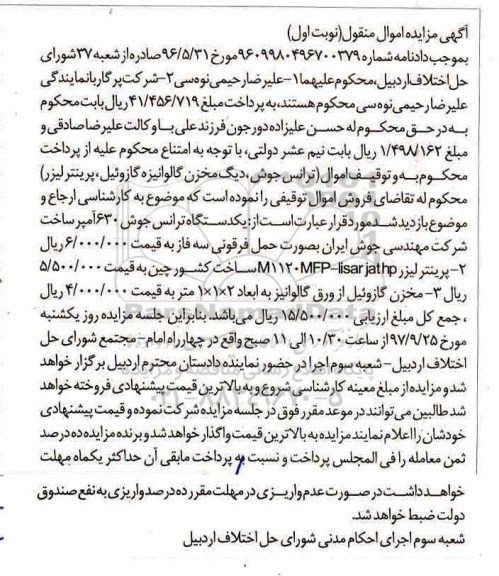 آگهی مزایده اموال منقول(نوبت اول)
بموجب دادنامه شماره ۹۶۰۹۹۸۰۴۹۶۷۰۰۳۷۹مورخ ۹۶/۵/۳۱ صادره از شعبه ۳۷ شورای
حل اختلاف اردبیل،محکوم علیهما۱-علیرضا رحیمی نوه سی ۲-شرکت پرگار بانمایندگی
علیرضا رحیمی نوه سی محکوم هستند،به پرداخت مبلغ ۴۱/۴۵۶/۷۱۹ ریال بابت محکوم
به در حق محکوم له حسن علیزاده دورجون فرزند علی با وکالت علیرضا صادقی و
مبلغ ۱/۴۹۸/۱۶۲ ریال بابت نیم عشر دولتی، با توجه به امتناع محکوم علیه از پرداخت
محکوم به و توقیف اموال (ترانس جوش ،دیگ مخزن گالوانیزه گازوئیل،پرینتر لیزر)
محکوم له تقاضای فروش اموال توقیفی را نموده است که موضوع به کارشناسی ارجاع و
موضوع بازدید شد مورد قرار عبارت است از:یکدستگاه ترانس جوش ۶۳۰آمپر ساخت
شرکت مهندسی جوش ایران بصورت حمل فرقونی سه فاز به قیمت ۶/۰۰۰/۰۰۰ ریال
۲- پرینتر لیزر M۱۱۲۰MFP-lisarjathp ساخت کشور چین به قیمت ۵/۵۰۰/۰۰۰
ریال ۳- مخزن گازوئیل از ورق گالوانیز به ابعاد ۲×۱×۱ متر به قیمت ۴/۰۰۰/۰۰۰ ریال
، جمع کل مبلغ ارزیابی ۱۵/۵۰۰/۰۰۰ ریال می‌باشد. بنابراین جلسه مزایده روز یکشنبه
مورخ ۹۷/۹/۲۵ از ساعت ۱۰/۳۰ الی ۱۱ صبح واقع در چهارراه امام- مجتمع شورای حل
اختلاف اردبیل – شعبه سوم اجرا در حضور نماینده دادستان محترم اردبیل برگزار خواهد
شد و مزایده از مبلغ معینه کارشناسی شروع و به بالاترین قیمت پیشنهادی فروخته خواهد
شد طالبین می‌توانند در موعد مقرر فوق در جلسه مزایده شرکت نموده و قیمت پیشنهادی
خودشان را اعلام نمایند مزایده به بالاترین قیمت واگذار خواهد شد و برنده مزایده ده درصد
ثمن معامله را فی المجلس پرداخت و نسبت به پرداخت مابقی آن حداکثر یکماه مهلت
خواهد داشت در صورت عدم واریزی در مهلت مقرر ده درصد واریزی به نفع صندوق
دولت ضبط خواهد شد.
شعبه سوم اجرای احکام مدنی شورای حل اختلاف اردبیل